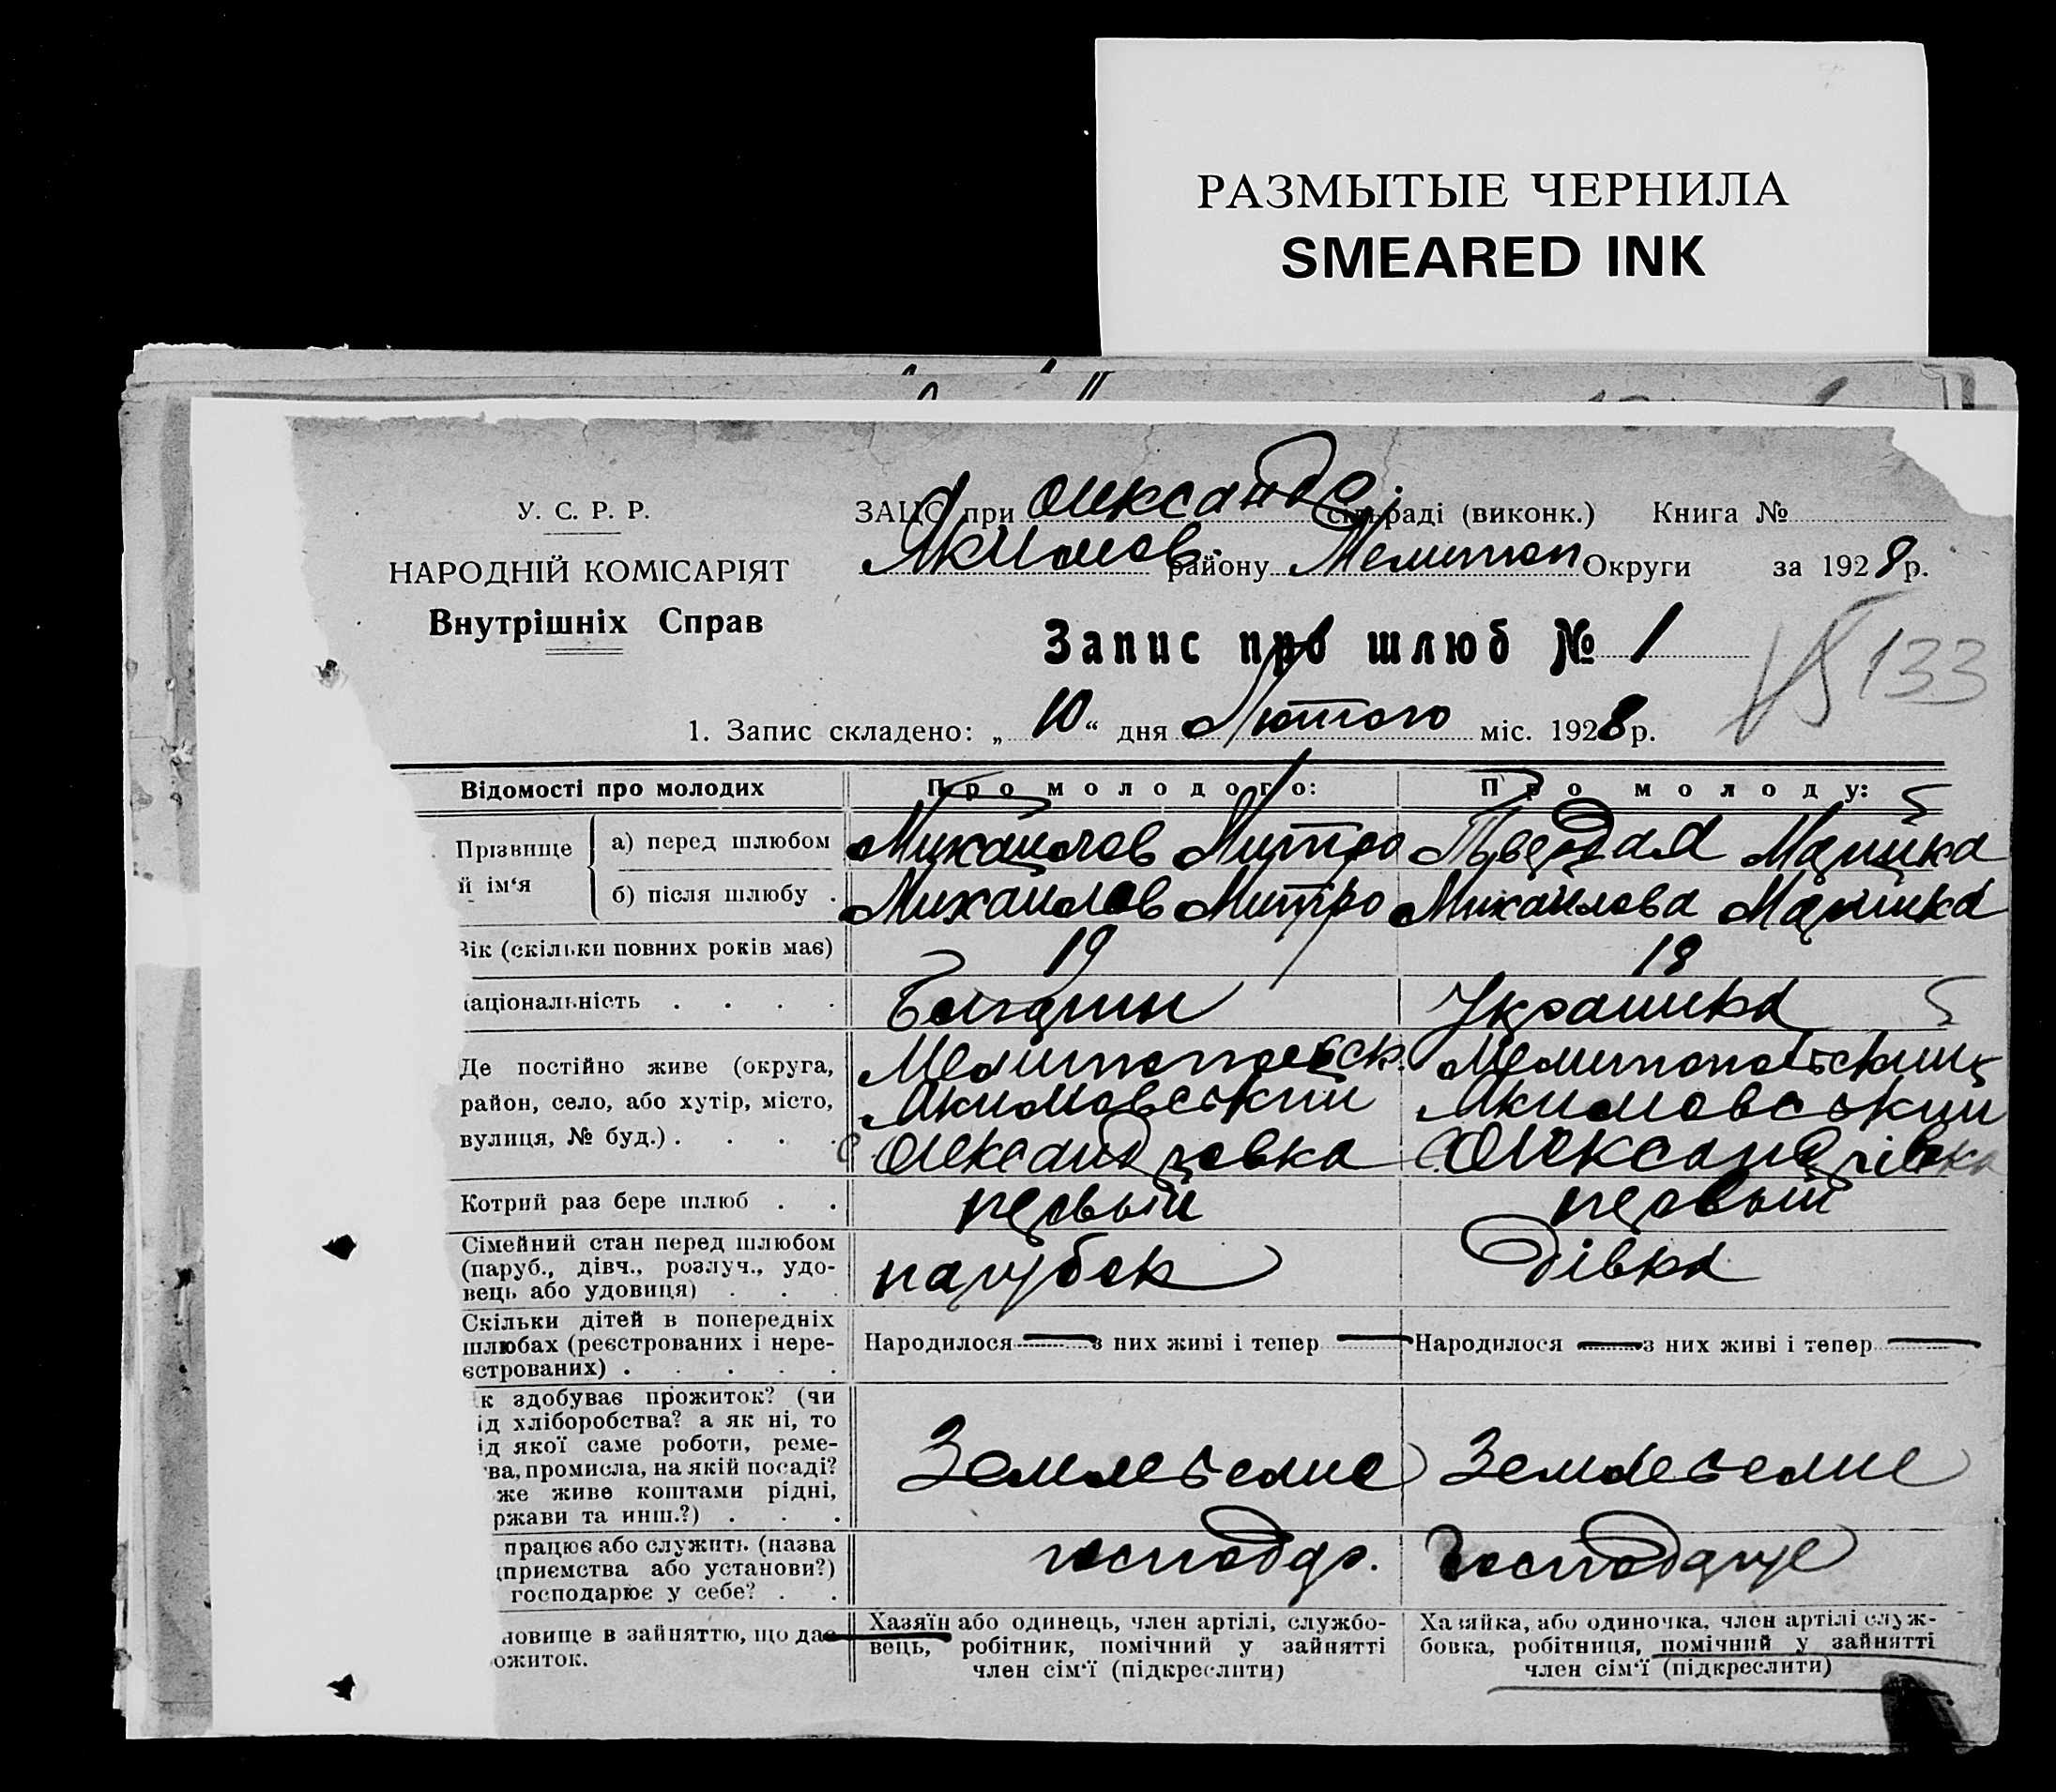 РАЗМЫТЫЕ ЧЕРНИЛА
SMEARED INK
У. С. Р. Р.
НАРОДНІЙ КОМІСАРІЯТ
Внутрішніх Справ
ЗАЦС при Олександр сільраді (виконк.) Книга №
Якимов. району Мелитоп. Округи за 1928 р.
Запис про шлюб № 1
133
1. Запис складено: „ 10 “ дня Лютого міс. 1928 р.
Відомості про молодих
Про молодого:
Про молоду:
Прізвище й ім‘я
а) перед шлюбом
Михайлов Митро
Твердая Марийка
б) після шлюбу .
Михаилов Митро
Михайлова Марийка
Вік (скільки повних років має)
19
18
аціональність . . . .
Болгарин
Украинка
Де постійно живе (округа,
район, село, або хутір, місто,
вулиця, № буд.) . . . .
Мелитопольск.
Якимовський
с. Олександровка
Мелитопольский
Якимовський
с. Олександрівка
Котрий раз бере шлюб . .
первый
первый
Сімейний стан перед шлюбом
(паруб., дівч., розлуч., удо-
вець або удовиця) . . .
парубок
дівка
Скільки дітей в попередніх
шлюбах (реєстрованих і нере-
єстрованих) . . . . .
Народилося — з них живі і тепер —
Народилося — з них живі і тепер —
к здобуває прожиток? (чи
ід хліборобства? а як ні, то
ід якої саме роботи, реме-
ва, промисла, на якій посаді?
же живе коштами рідні,
ржави та инш.?) . . .
Земледелие
Земледелие
працює або служить (назва
приємства або установи?)
господарює у себе? . .
господар.
господарує
новище в зайняттю, що дає
ожиток.
Хазяїн або одинець, член артілі, службо-
вець, робітник, помічний у зайнятті
член сім‘ї (підкреслити)
Хазяйка, або одиночка, член артілі служ-
бовка, робітниця, помічний у зайнятті
член сім‘ї (підкреслити)